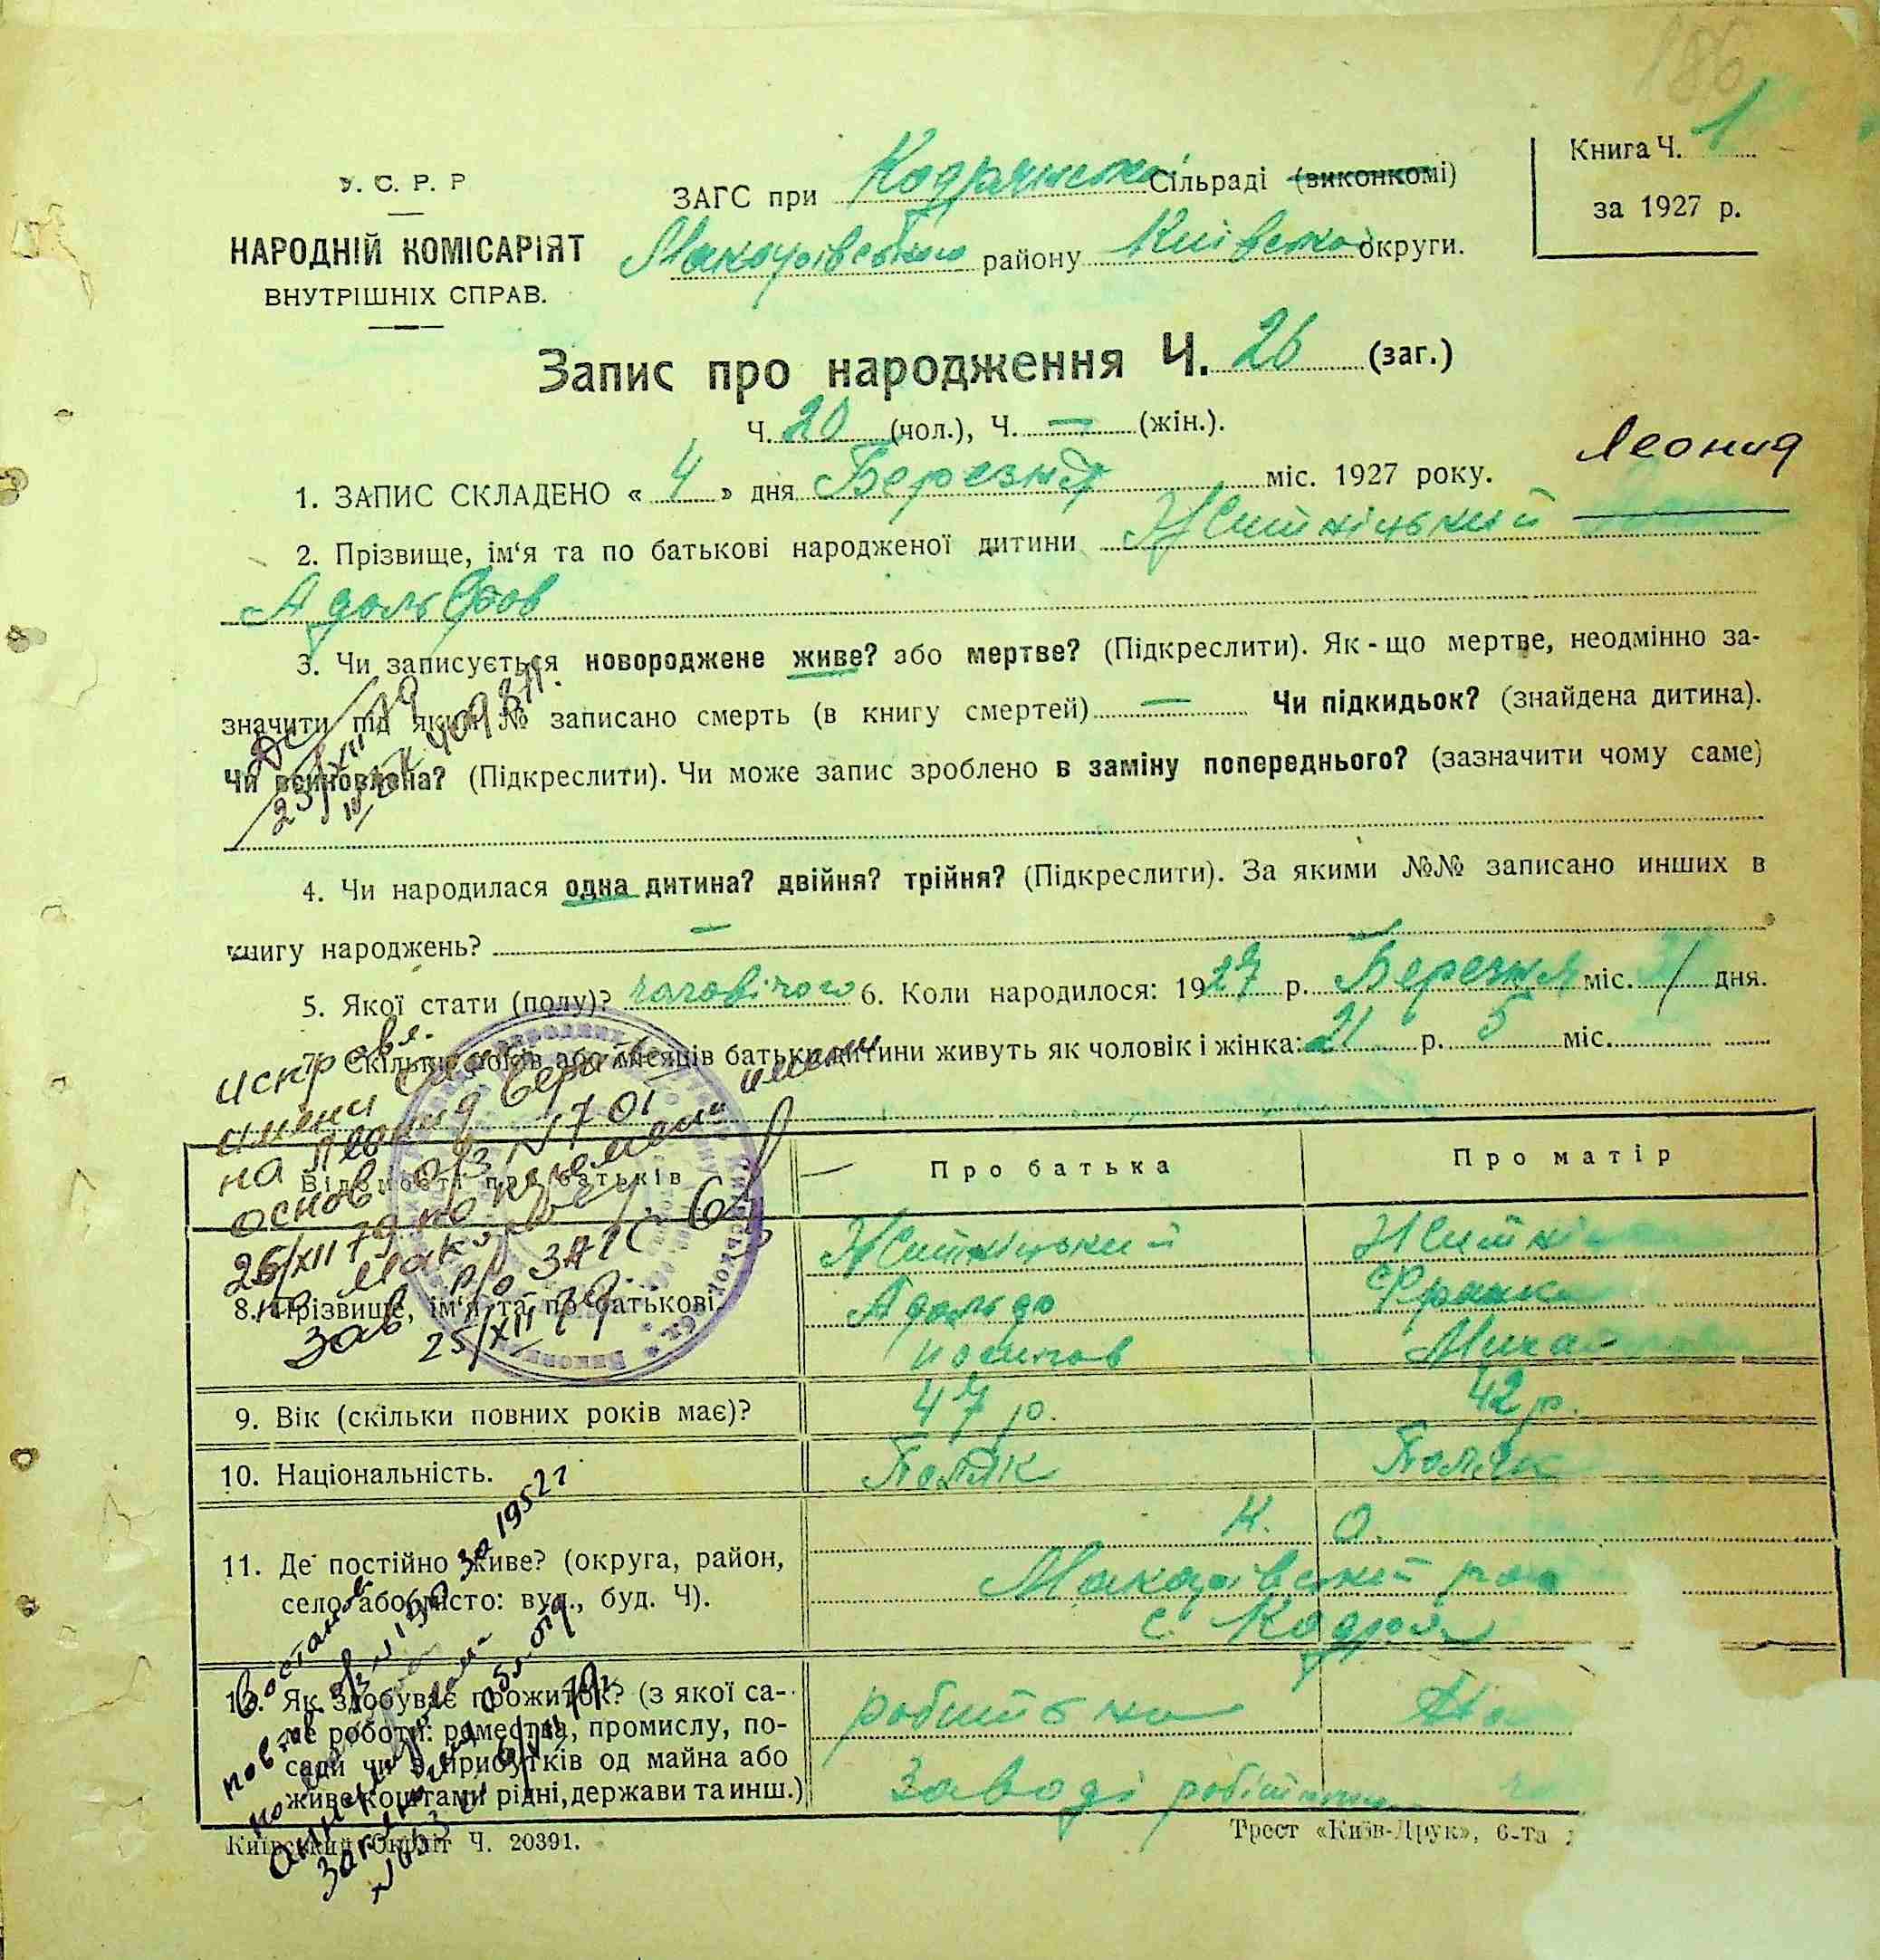 186
У. С. Р. Р
НАРОДНІЙ КОМІСАРІЯТ
ВНУТРІШНІХ СПРАВ.
ЗАГС при Кодрянській Сільраді (виконкомі)
Макарівського району Київської округи.
Книга Ч. 1
за 1927 р.
Запис про народження Ч. 26 (заг.)
Ч. 20 (чол.), Ч. — (жін.).
Леонид
1. ЗАПИС СКЛАДЕНО « 4 » дня Березня міс. 1927 року.
2. Прізвище, ім‘я та по батькові народженої дитини Житніцький
Адольфов
3. Чи записується новороджене живе? або мертве? (Підкреслити). Як-що мертве, неодмінно за-
значити під яким № записано смерть (в книгу смертей) — Чи підкидьок? (знайдена дитина).
Чи всиновлена? (Підкреслити). Чи може запис зроблено в заміну попереднього? (зазначити чому саме)
4. Чи народилася одна дитина? двійня? трійня? (Підкреслити). За якими №№ записано инших в
книгу народжень? —
5. Якої стати (полу)? чоловічого 6. Коли народилося: 1927 р. Березня міс. 1 дня.
7. Скільки років або місяців батьки дитини живуть як чоловік і жінка: 21 р. 5 міс.
исправл.
имени
на Леонид
основ. N 701
26/XII 79
Зав. р/о ЗАГС
25/XII 79.
Відомості про батьків
Про батька
Про матір
8. Прізвище, ім‘я та по батькові.
Житніцький
Адольф
Йосипов
Житні
Франк
Миха
9. Вік (скільки повних років має)?
47 р.
42 р.
10. Національність.
Поляк
Поляк
11. Де постійно живе? (округа, район,
село або місто: вул., буд. Ч).
К. О.
Макарівський
с. Кодра
12. Як здобуває прожиток? (з якої са-
ме роботи: ремества, промислу, по-
сади чи з прибутків од майна або
живе коштами рідні, держави та инш.)
робітник на
На
Заводі
за 1952 г
Київський Окрліт Ч. 20391.
Трест «Київ-Друк», 6-та